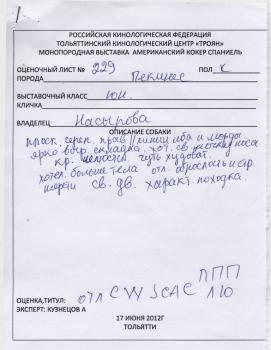 РОССИЙСКАЯ КИНОЛОГИЧЕСКАЯ ФЕДЕРАЦИЯ
ТОЛЬЯТТИНСКИЙ КИНОЛОГИЧЕСКИЙ ЦЕНТР «ТРОЯН»
МОНОПОРОДНАЯ ВЫСТАВКА АМЕРИКАНСКИЙ КОКЕР СПАНИЕЛЬ
ОЦЕНОЧНЫЙ ЛИСТ № 229 ПОЛ К
ПОРОДА Пекинес
ВЫСТАВОЧНЫЙ КЛАСС юн.
КЛИЧКА
ВЛАДЕЛЕЦ Насырова
ОПИСАНИЕ СОБАКИ
прав // линии лба и морды
ярко выр. складка. хот. св. носа
кр. чуть худоват.
хотел. больше тела отл.
шерсти св. дв. характ. походка.
ППП
ОЦЕНКА,ТИТУЛ: отл CW JCAC ЛЮ
ЭКСПЕРТ: КУЗНЕЦОВ А
17 ИЮНЯ 2012Г
ТОЛЬЯТТИ